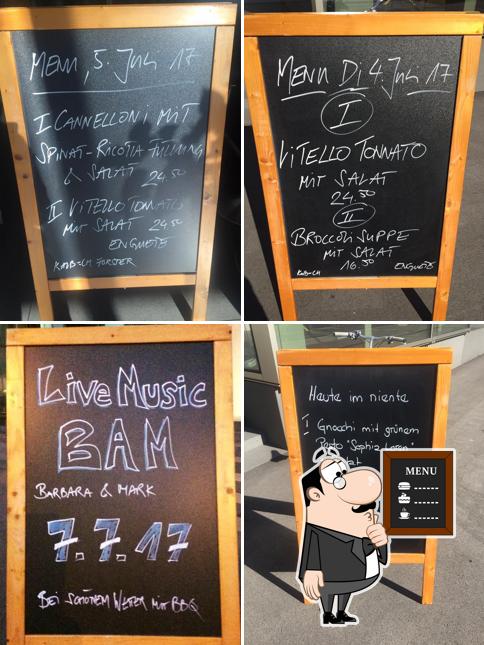 MENU, 5. Juli 17
I CANNELLONI MIT
SPINAT-RICOTTA FÜLLUNG
& SALAT 24.50
II VITELLO TONNATO
MIT SALAT 24.50
EN GUETE
KALB=CH
MENU Di 4. Juli 17
I
VITELLO TONNATO
MIT SALAT
24.50
II
BROCCOLI SUPPE
MIT SALAT
16.50 EN GUETE
KALB=CH
Live Music
BAM
BARBARA & MARK
7.7.17
BEI SCHÖNEM WETTER MIT BBQ
Heute im niente
I Gnocchi mit grünem
Pesto "Sophia Loren"
MENU